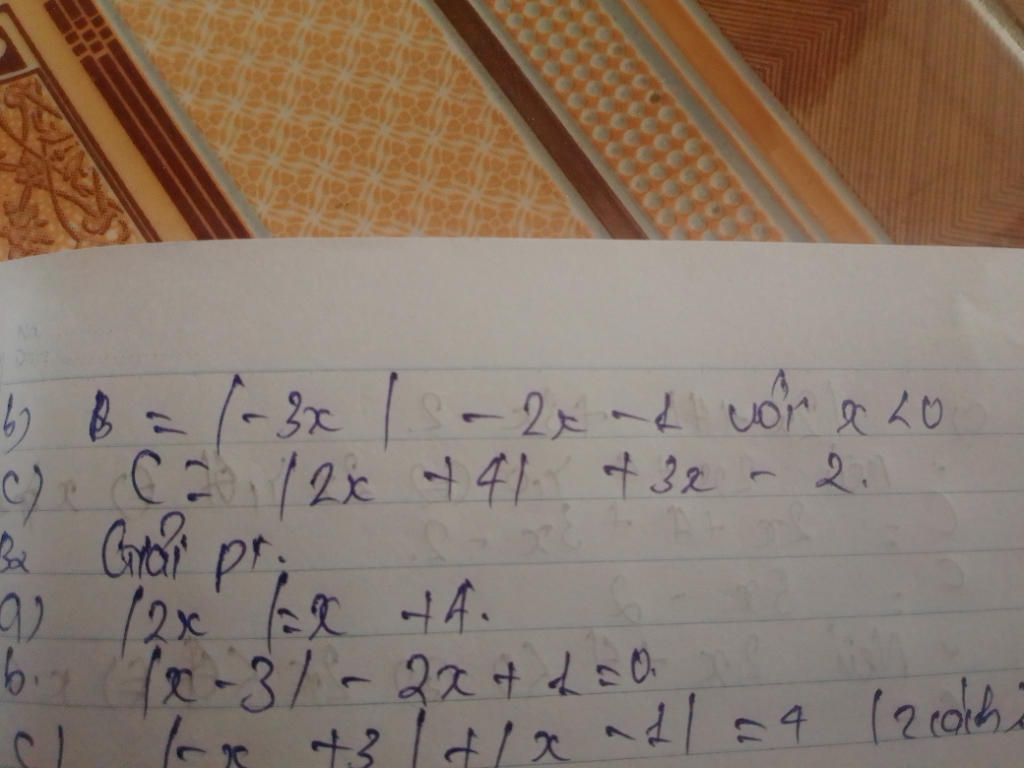 b) B = |-3x| - 2x - 1 với x < 0
c) C = |2x + 4| + 3x - 2.
B2 Giải pt.
a) |2x| = x + 4.
b. |x - 3| - 2x + 1 = 0.
c) |-x + 3| + |x - 1| = 4 (2 cách